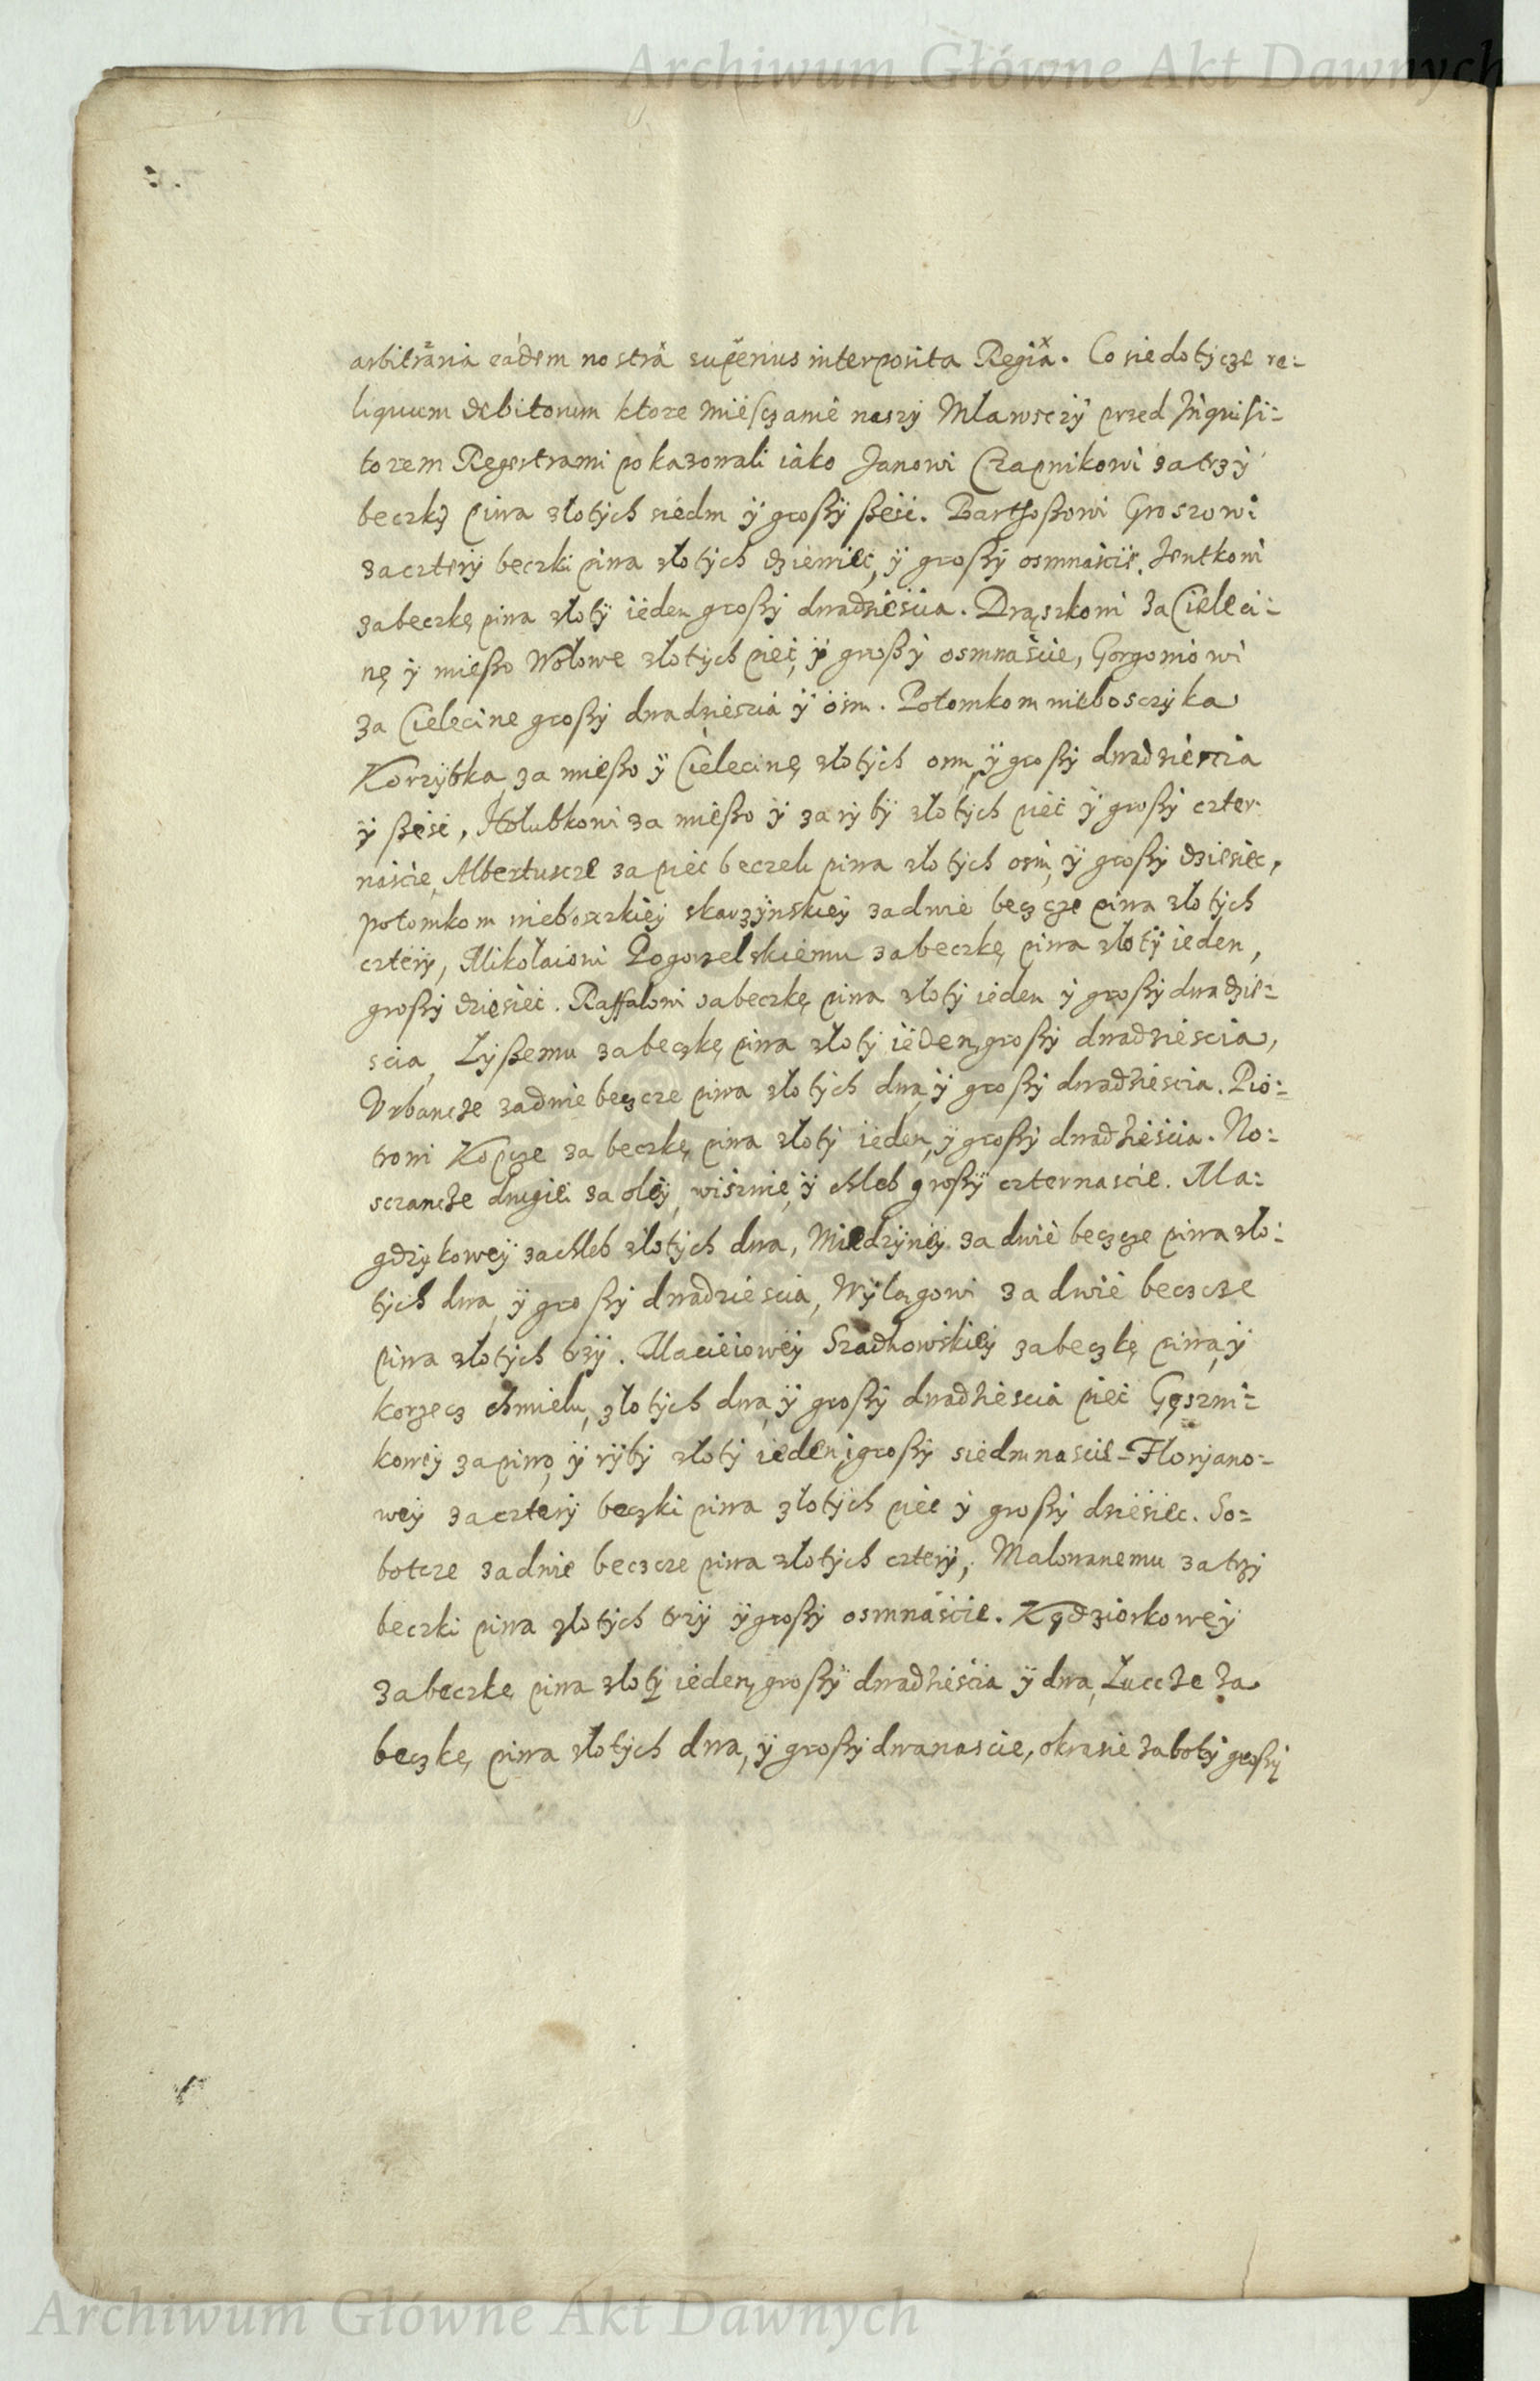 Archiwum Główne Akt Dawnych
arbitraria eadem nostra superius interposita Regia. Co sie dotycze re-
liquum debitorum ktore miesczanie naszy Mlawsczy przed Inquisi-
torem Regestrami pokazowali iako Janowi Czapnikowi za trzy
beczky piwa złotych siedm ÿ groszÿ szesc. Barthoszowi Groszowi
za cztery beczki piwa złotych dziewiec, ÿ groszy osmnascie, Jentkowi
za beczkę piwa złoty ieden groszy dwadziescia. Drąszkowi za Cieleci-
nę ÿ mieszo Wołowe złotych piec, ÿ groszy osmnascie, Gorgoniowi
za Cielecine groszy dwadziescia ÿ osm. Potomkom nieboszczyka
Korzybka za mieszo ÿ Cielecinę złotych osm, ÿ groszy dwadziescia
ÿ szesc, Hołubkowi za mieszo ÿ za ryby złotych piec ÿ groszy czter-
nascie, Albertuscze za piec beczek piwa złotych osm, ÿ groszy dziesiec,
potomkom nieboszczkiey skarzynskiey za dwie beczcze piwa złotych
cztery, Mikołaiowi Pogorzelskiemu za beczkę piwa złoty ieden,
groszy dziesiec. Raffałowi za beczkę piwa złoty ieden ÿ groszy dwadzie-
scia, Łyszemu za beczkę piwa złoty ieden, groszy dwadziescia,
Vrbancze za dwie beczcze piwa złotych dwa, ÿ groszy dwadziescia. Pio-
trowi Kopcze za beczkę piwa złoty ieden, ÿ groszy dwadziescia. No-
sczancze drugiei za oley, wisznie, ÿ chleb groszÿ czternascie. Ma-
gdzykowey za chleb złotych dwa, Miedzyniey za dwie beczcze piwa zło-
tych dwa, ÿ groszy dwadziescia, Wylągowi za dwie beczcze
piwa złotych trzÿ. Macieiowey Szadkowskiey za beczkę piwa, ÿ
korzecz chmielu, złotych dwa, ÿ groszy dwadziescia piec Gęszni-
kowey za piwo, ÿ rÿby złoty ieden, groszy siedmnascie - Floryano-
wey za cztery beczki piwa złotych piec ÿ groszy dziesiec. So-
botcze za dwie beczcze piwa złotych cztery, Malowanemu za trzy
beczki piwa złotych trzÿ ÿ groszy osmnascie. Kędziorkowey
za beczkę piwa złoty ieden, groszÿ dwadziescia ÿ dwa, Łuccze za
beczkę piwa złotych dwa, ÿ groszy dwanascie, okrasie za boty groszy
Archiwum Główne Akt Dawnych